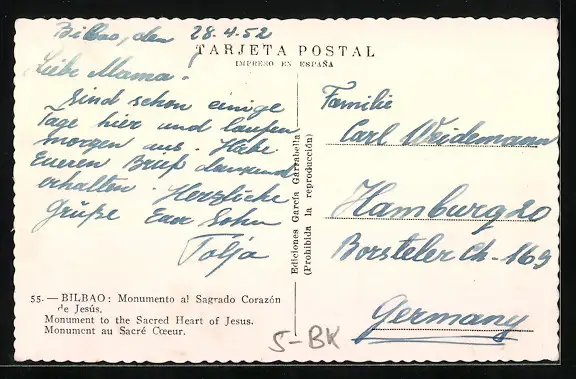 Bilbao, den 28.4.52
TARJETA POSTAL
IMPRESO EN ESPAÑA
Liebe Mama!
Sind schon einige
Tage hier und laufen
morgen aus. Habe
Eueren Brief dankend
erhalten. Herzliche
Grüße Euer Sohn
Tolja
Familie
Carl Weidemann
Hamburg 20
Borsteler Ch-169
Germany
Ediciones García Garrabella
(Prohibida la reproducción)
55.—BILBAO: Monumento al Sagrado Corazón
de Jesús.
Monument to the Sacred Heart of Jesus.
Monument au Sacré Cœur.
5-BK